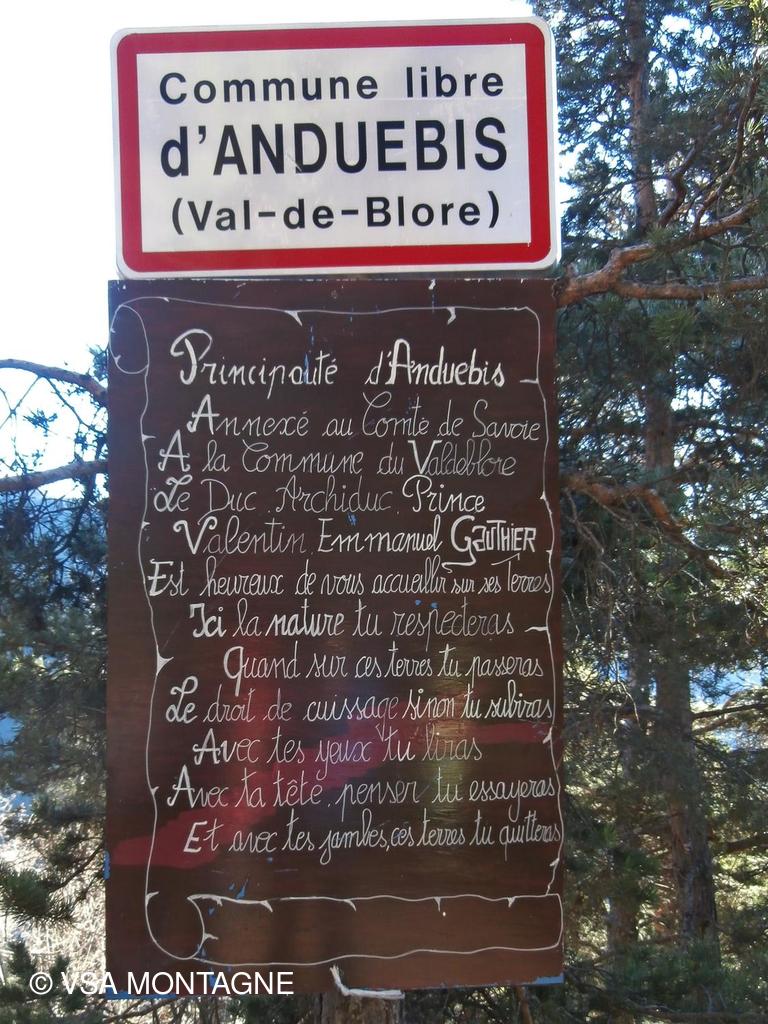 Commune libre
d'ANDUEBIS
(Val-de-Blore)
Principauté d'Anduebis
Annexé au Comté de Savoie
A la Commune du Valdeblore
Le Duc Archiduc Prince
Valentin Emmanuel GAUTHIER
Est heureux de vous accueillir sur ses Terres
Ici la nature tu respecteras
Quand sur ces terres tu passeras
Le droit de cuissage sinon tu subiras
Avec tes yeux tu liras
Avec ta tête penser tu essayeras
Et avec tes jambes, ces terres tu quitteras
© VSA MONTAGNE